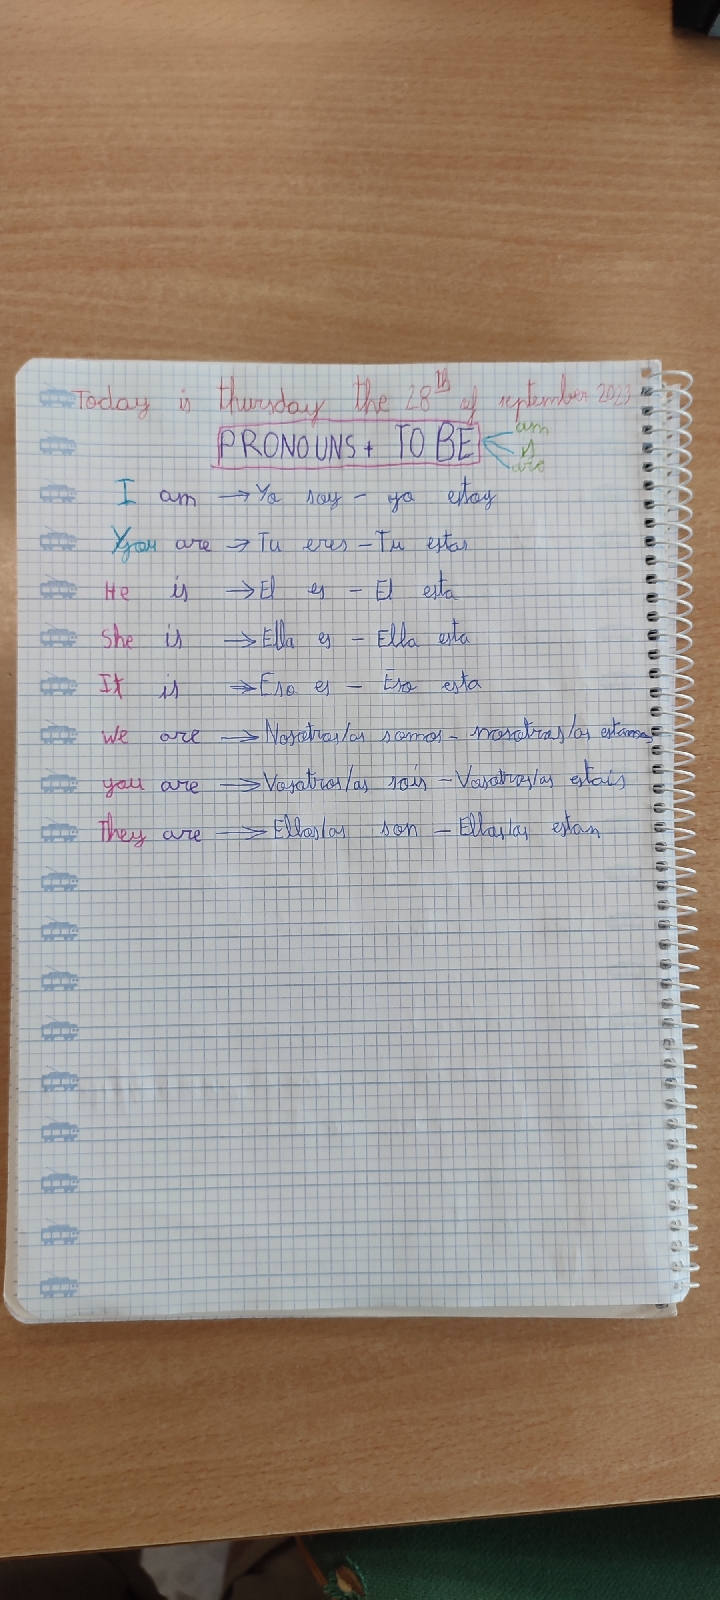 Today is thursday the 28th of september 2023
PRONOUNS + TO BE am is are
I am → Yo soy - yo estoy
You are → Tu eres - Tu estas
He is → El es - El esta
She is → Ella es - Ella esta
It is → Eso es - Eso esta
We are → Nosotros/as somos - nosotros/as estamos
you are → Vosotros/as sois - Vosotros/as estais
They are → Ellos/as son - Ellos/as estan